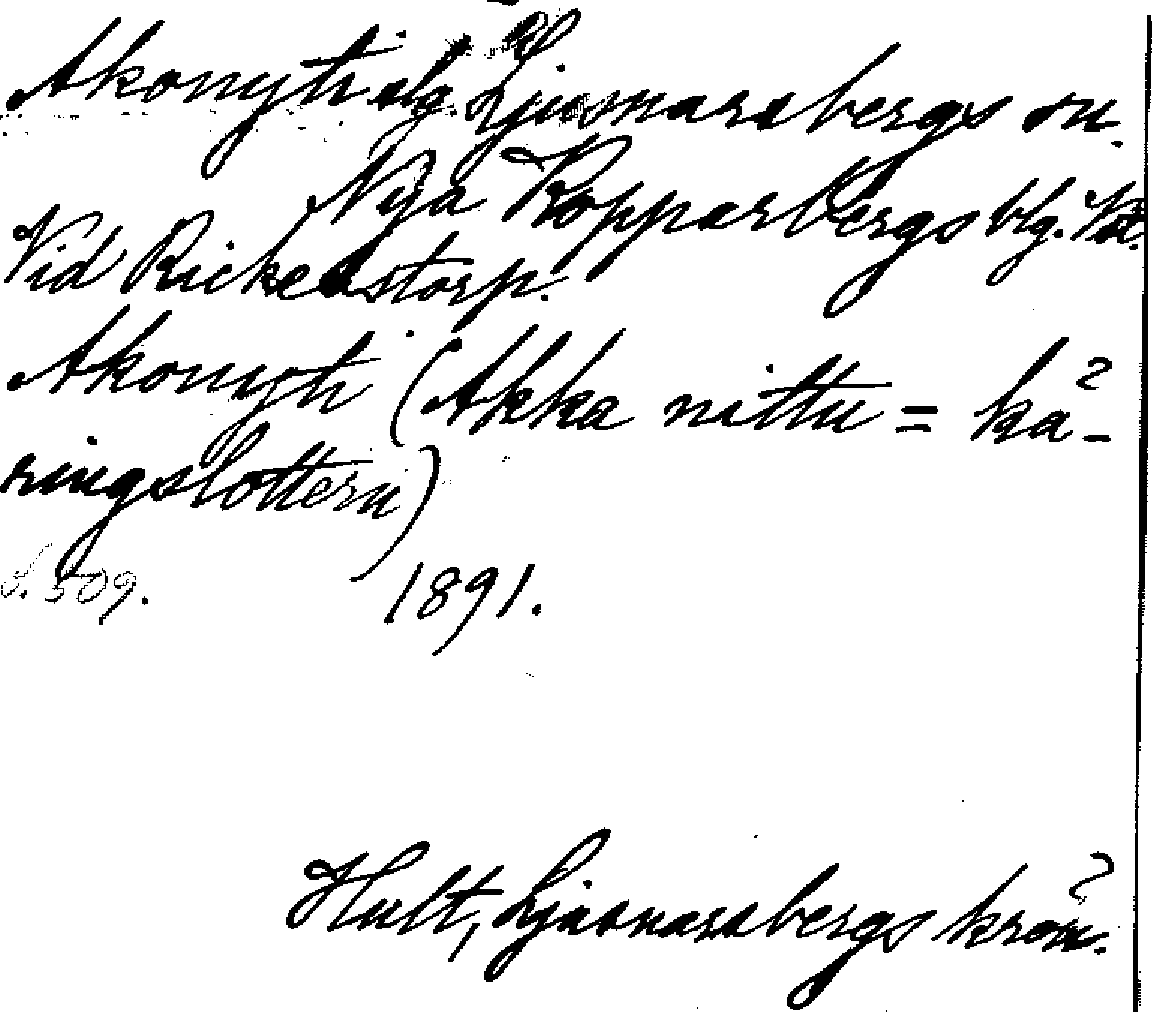 Akonyti äg. Ljusnarsbergs sn.
Nya Kopparbergs blg. Vst.
Vid Rickelstorp.
Akonyti (Akka nittu = kä-
ringslottern)
s. 509. 1891.
Hult, Ljusnarsbergs krön.